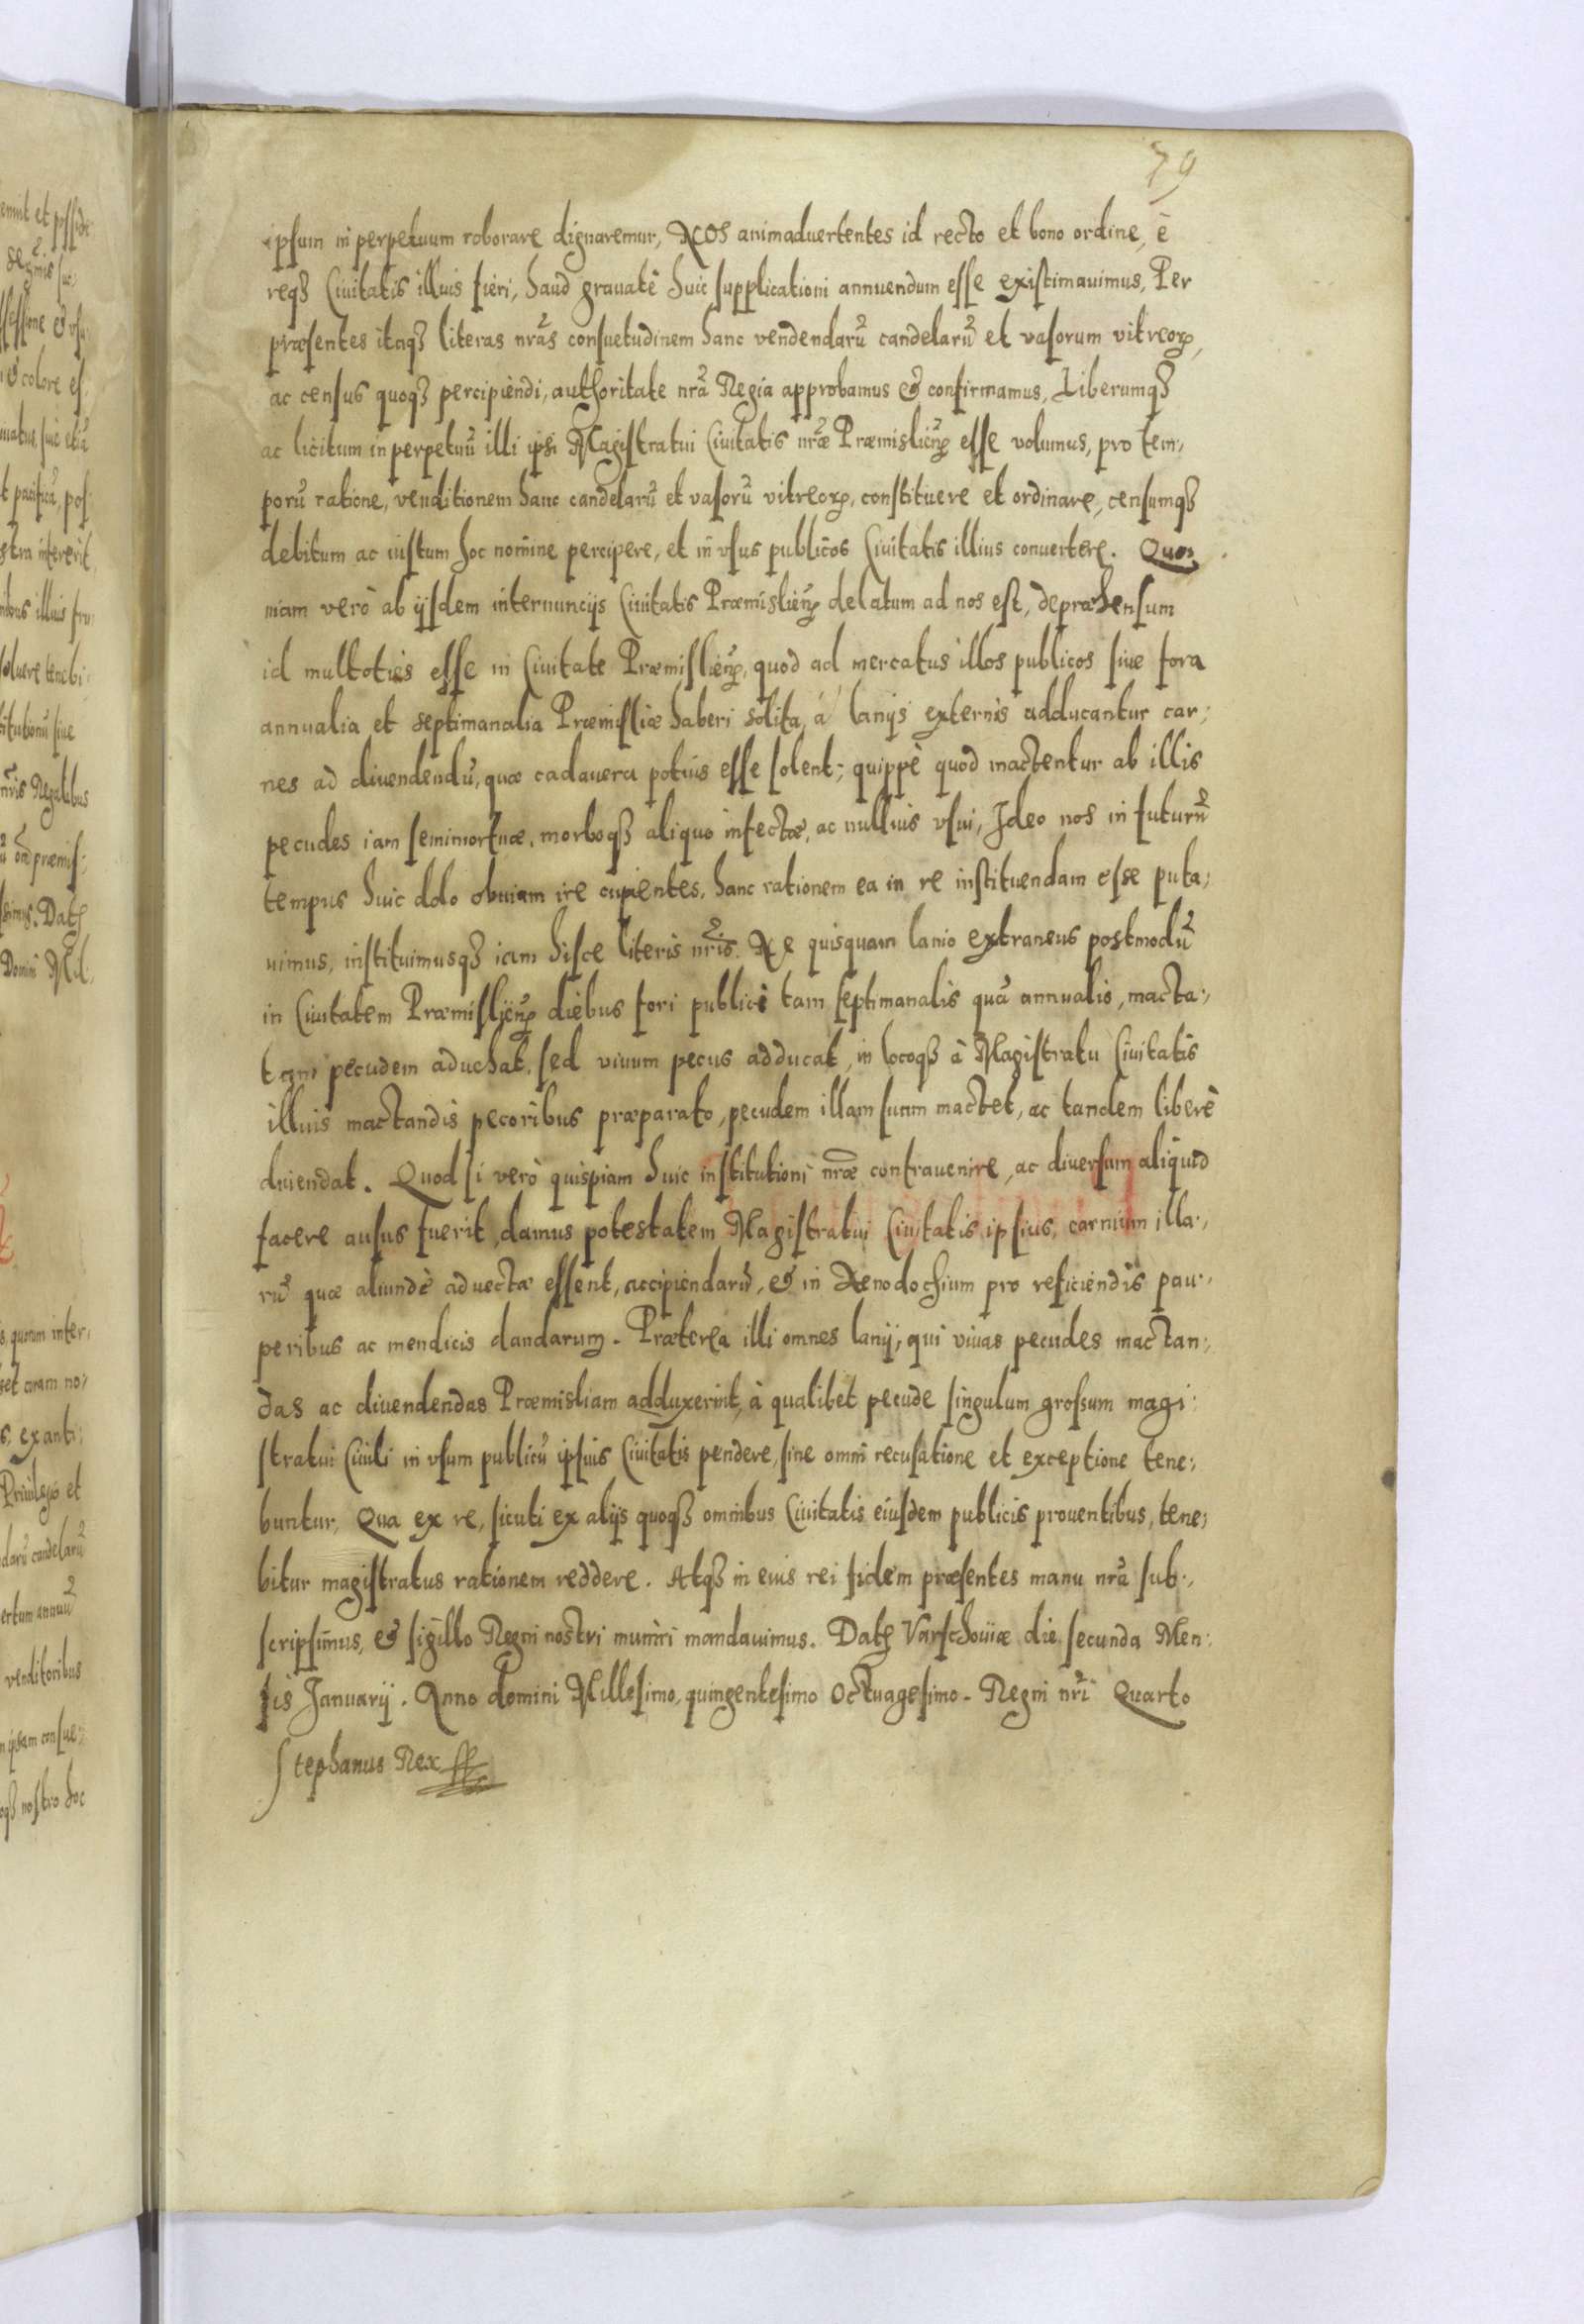 79
ipsum in perpetuum roborare dignaremur, NOS animaduertentes id recto et bono ordine, è
reqꝫ Ciuitatis illius fieri, haud grauatè huic supplicationi annuendum esse existimauimus, Per
præsentes itaqꝫ literas nr̃as consuetudinem hanc vendendarũ candelarũ et vasorum vitreoꝝ,
ac census quoqꝫ percipiendi, authoritate nr̃a Regia approbamus & confirmamus, Liberumqꝫ
ac licitum in perpetuũ illi ipsi Magistratui Ciuitatis nr̃æ Præmislieñ esse volumus, pro tem,
porũ ratione, venditionem hanc candelarũ et vasorũ vitreoꝝ, constituere et ordinare, censumqꝫ
debitum ac iustum hoc nomine percipere, et in vsus publicos Ciuitatis illius conuertere. Quo,
niam verò ab ijsdem internuncijs Ciuitatis Præmislieñ delatum ad nos est, depræhensum
id multoties esse in Ciuitate Præmislieñ, quod ad mercatus illos publicos siue fora
annualia et septimanalia Præmisliæ haberi solita, à lanijs externis adducantur car;
nes ad diuendendũ, quæ cadauera potius esse solent; quippè quod mactentur ab illis
pecudes iam semimortuæ, morboqꝫ aliquo infectæ, ac nullius vsui, Ideo nos in futurũ
tempus huic dolo obuiam ire cupientes, hanc rationem ea in re instituendam esse puta,
uimus, instituimusqꝫ iam hisce literis nr̃is. Ne quisquam lanio extraneus postmodũ
in Ciuitatem Præmislieñ diebus fori publici tam septimanalis quã annualis, macta,
tam pecudem aduehat, sed viuum pecus adducat, in locoqꝫ à Magistratu Ciuitatis
illius mactandis pecoribus præparato, pecudem illam suam mactet, ac tandem liberè
diuendat. Quod si verò quispiam huic institutioni nr̃æ contrauenire, ac diuersum aliquid
facere ausus fuerit, damus potestatem Magistratui Ciuitatis ipsius, carnium illa,
rũ quæ aliundè aduectæ essent, accipiendarũ, & in Xenodochium pro reficiendis pau,
peribus ac mendicis dandarum. Præterea illi omnes lanij, qui viuas pecudes mactan,
das ac diuendendas Præmisliam adduxerint, à qualibet pecude singulum grossum magi:
stratui Ciuili in vsum publicũ ipsius Ciuitatis pendere, sine omni recusatione et exceptione tene,
buntur, Qua ex re, sicuti ex alijs quoqꝫ omnibus Ciuitatis eiusdem publicis prouentibus, tene;
bitur magistratus rationem reddere. Atqꝫ in eius rei fidem præsentes manu nr̃a sub,
scripsimus, & sigillo Regni nostri muniri mandauimus. Datꝭ Varschouiæ die secunda Men:
sis Januarij. Anno domini Millesimo, quingentesimo Octuagesimo. Regni nr̃i Quarto
Stephanus Rex